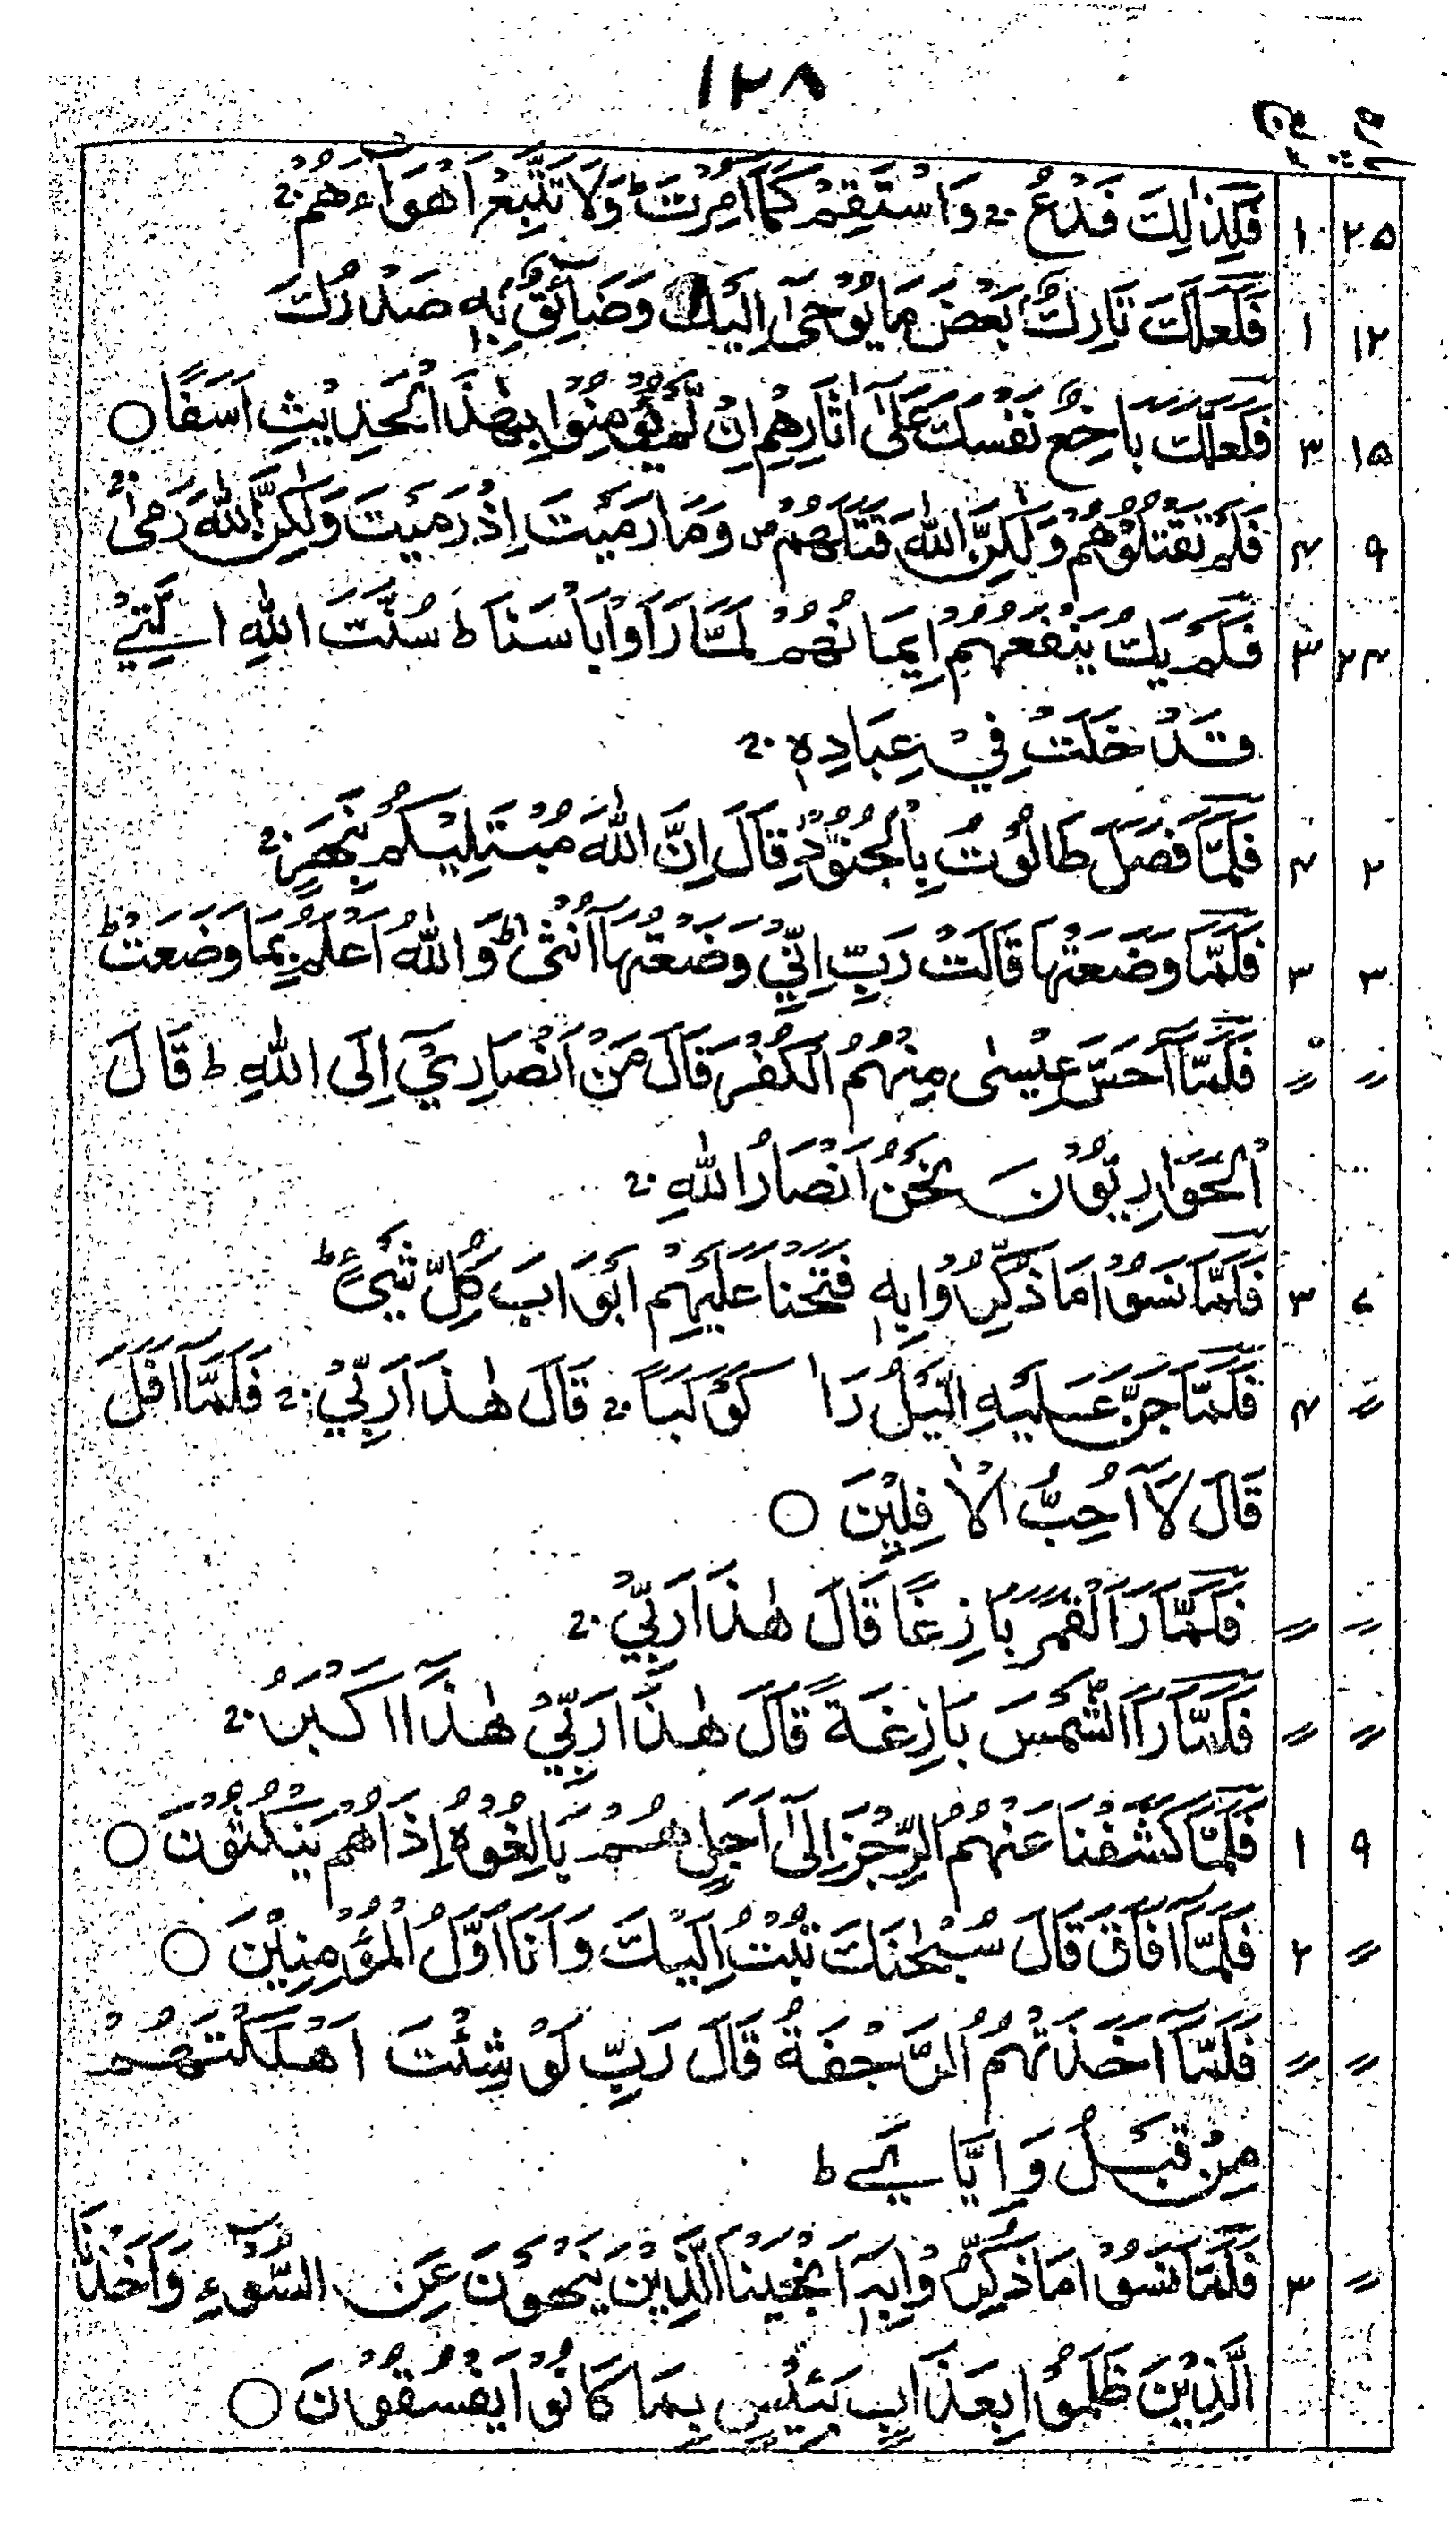 ۱۲۸
۲۵ ۱ فَلِذٰلِكَ فَادْعُ ۚ وَاسْتَقِمْ كَمَآ اُمِرْتَ ۚ وَلَا تَتَّبِعْ اَهْوَآءَهُمْ ۚ
۱۲ ۱ فَلَعَلَّكَ تَارِكٌۢ بَعْضَ مَا يُوْحٰٓى اِلَيْكَ وَضَآئِقٌۢ بِهٖ صَدْرُكَ
۱۵ ۳ فَلَعَلَّكَ بَاخِعٌ نَّفْسَكَ عَلٰٓى اٰثَارِهِمْ اِنْ لَّمْ يُؤْمِنُوْا بِهٰذَا الْحَدِيْثِ اَسَفًا ○
۹ ۴ فَلَمْ تَقْتُلُوْهُمْ وَلٰكِنَّ اللّٰهَ قَتَلَهُمْ ص وَمَا رَمَيْتَ اِذْ رَمَيْتَ وَلٰكِنَّ اللّٰهَ رَمٰى ۚ
۲۴ ۳ فَلَمْ يَكُ يَنْفَعُهُمْ اِيْمَانُهُمْ لَمَّا رَاَوْا بَاْسَنَا ط سُنَّتَ اللّٰهِ الَّتِيْ
قَدْ خَلَتْ فِيْ عِبَادِهٖ ۚ
۲ ۴ فَلَمَّا فَصَلَ طَالُوْتُ بِالْجُنُوْدِ قَالَ اِنَّ اللّٰهَ مُبْتَلِيْكُمْ بِنَهَرٍ ۚ
۳ ۳ فَلَمَّا وَضَعَتْهَا قَالَتْ رَبِّ اِنِّيْ وَضَعْتُهَآ اُنْثٰى ط وَاللّٰهُ اَعْلَمُ بِمَا وَضَعَتْ ط
〃 ۵ فَلَمَّآ اَحَسَّ عِيْسٰى مِنْهُمُ الْكُفْرَ قَالَ مَنْ اَنْصَارِيْٓ اِلَى اللّٰهِ ط قَالَ
الْحَوَارِيُّوْنَ نَحْنُ اَنْصَارُ اللّٰهِ ۚ
۷ ۳ فَلَمَّا نَسُوْا مَا ذُكِّرُوْا بِهٖ فَتَحْنَا عَلَيْهِمْ اَبْوَابَ كُلِّ شَيْءٍ ط
〃 ۴ فَلَمَّا جَنَّ عَلَيْهِ الَّيْلُ رَاٰ كَوْكَبًا ۚ قَالَ هٰذَا رَبِّيْ ۚ فَلَمَّآ اَفَلَ
قَالَ لَآ اُحِبُّ الْاٰفِلِيْنَ ○
〃 〃 فَلَمَّا رَاَ الْقَمَرَ بَازِغًا قَالَ هٰذَا رَبِّيْ ۚ
〃 〃 فَلَمَّا رَاَ الشَّمْسَ بَازِغَةً قَالَ هٰذَا رَبِّيْ هٰذَآ اَكْبَرُ ۚ
۹ ۱ فَلَمَّا كَشَفْنَا عَنْهُمُ الرِّجْزَ اِلٰٓى اَجَلٍ هُمْ بَالِغُوْهُ اِذَا هُمْ يَنْكُثُوْنَ ○
〃 ۲ فَلَمَّآ اَفَاقَ قَالَ سُبْحٰنَكَ تُبْتُ اِلَيْكَ وَاَنَا اَوَّلُ الْمُؤْمِنِيْنَ ○
〃 〃 فَلَمَّآ اَخَذَتْهُمُ الرَّجْفَةُ قَالَ رَبِّ لَوْ شِئْتَ اَهْلَكْتَهُمْ
مِنْ قَبْلُ وَاِيَّايَ ط
〃 ۳ فَلَمَّا نَسُوْا مَا ذُكِّرُوْا بِهٖٓ اَنْجَيْنَا الَّذِيْنَ يَنْهَوْنَ عَنِ السُّوْٓءِ وَاَخَذْنَا
الَّذِيْنَ ظَلَمُوْا بِعَذَابٍ بَئِيْسٍ بِمَا كَانُوْا يَفْسُقُوْنَ ○